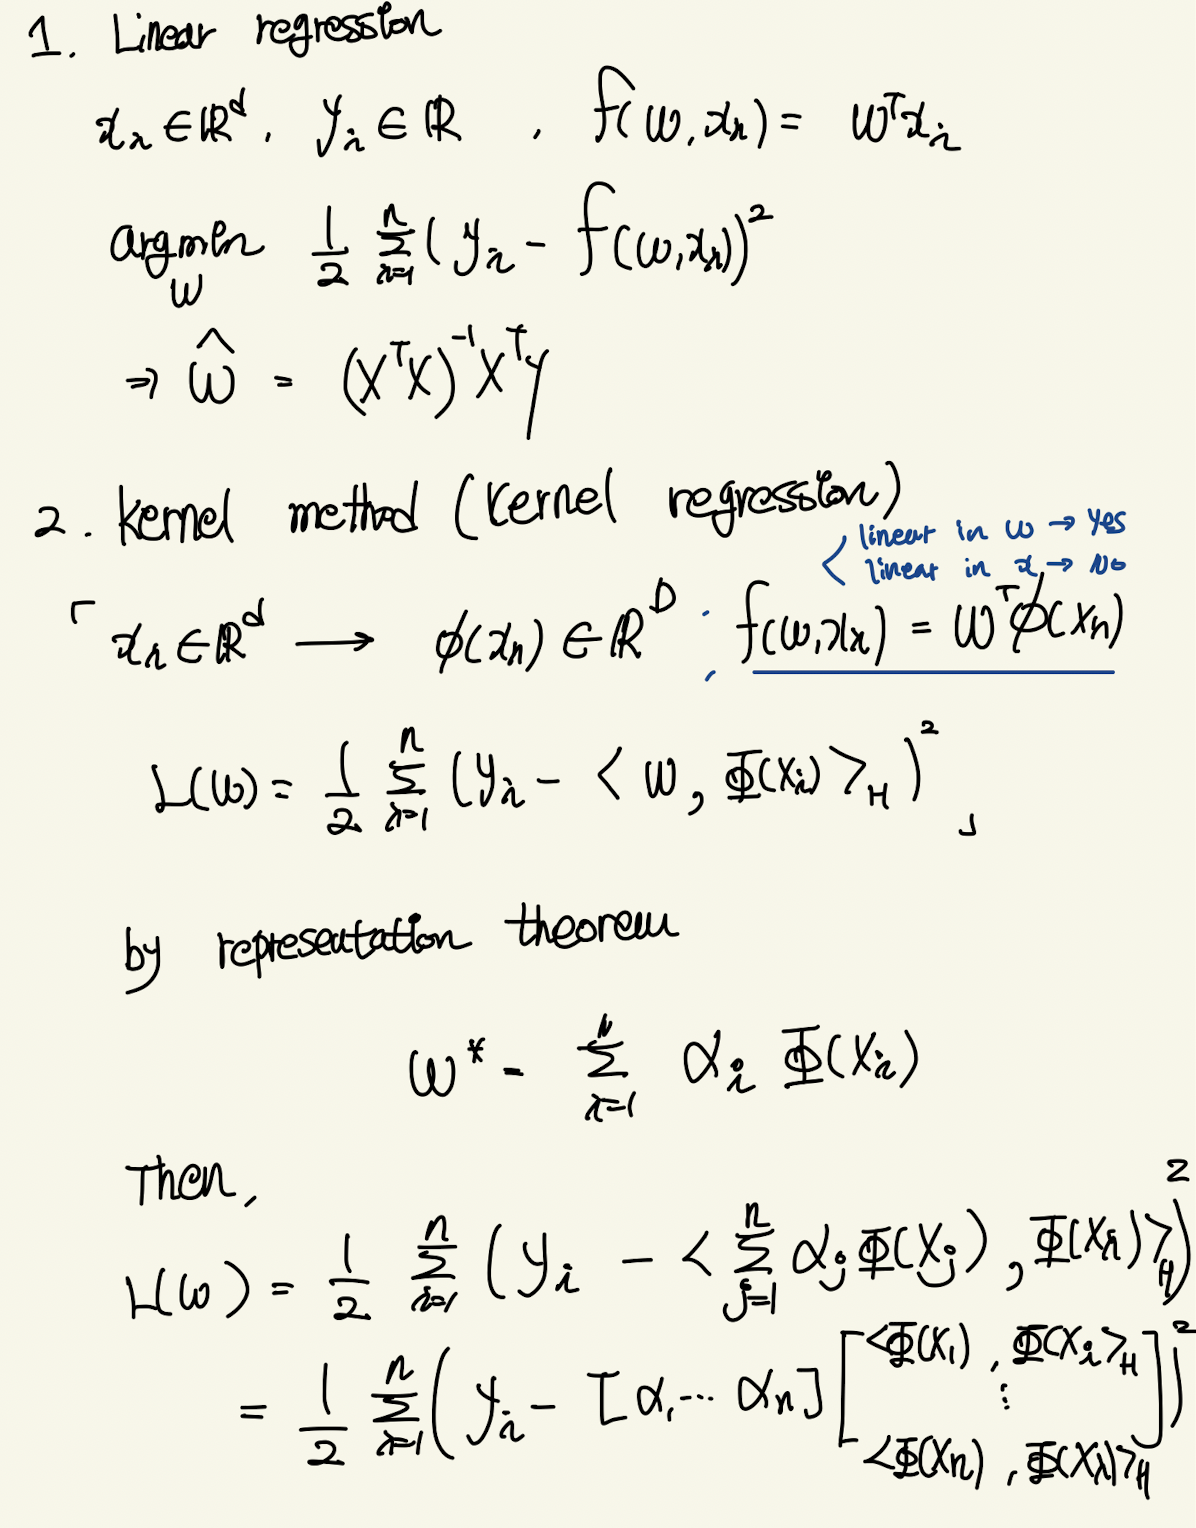 1. Linear regression
xᵢ ∈ ℝᵈ, yᵢ ∈ ℝ, f(w, xᵢ) = wᵀxᵢ
argmin_w 1/2 Σᵢ₌₁ⁿ (yᵢ - f(w, xᵢ))²
⇒ ŵ = (XᵀX)⁻¹Xᵀy
2. kernel method (kernel regression)
< linear in w → yes
linear in x → No
「 xᵢ ∈ ℝᵈ ⟶ ϕ(xᵢ) ∈ ℝᴰ ; f(w, xᵢ) = wᵀϕ(xᵢ)
L(w) = 1/2 Σᵢ₌₁ⁿ (yᵢ - < w, Φ(xᵢ) >_H )² 」
by representation theorem
w* = Σᵢ₌₁ⁿ αᵢ Φ(xᵢ)
Then,
L(w) = 1/2 Σᵢ₌₁ⁿ (yᵢ - < Σⱼ₌₁ⁿ αⱼ Φ(xⱼ), Φ(xᵢ) >_H )²
= 1/2 Σᵢ₌₁ⁿ (yᵢ - [α₁ ⋯ αₙ] [ <Φ(x₁), Φ(xᵢ)>_H ⋮ <Φ(xₙ), Φ(xᵢ)>_H ] )²